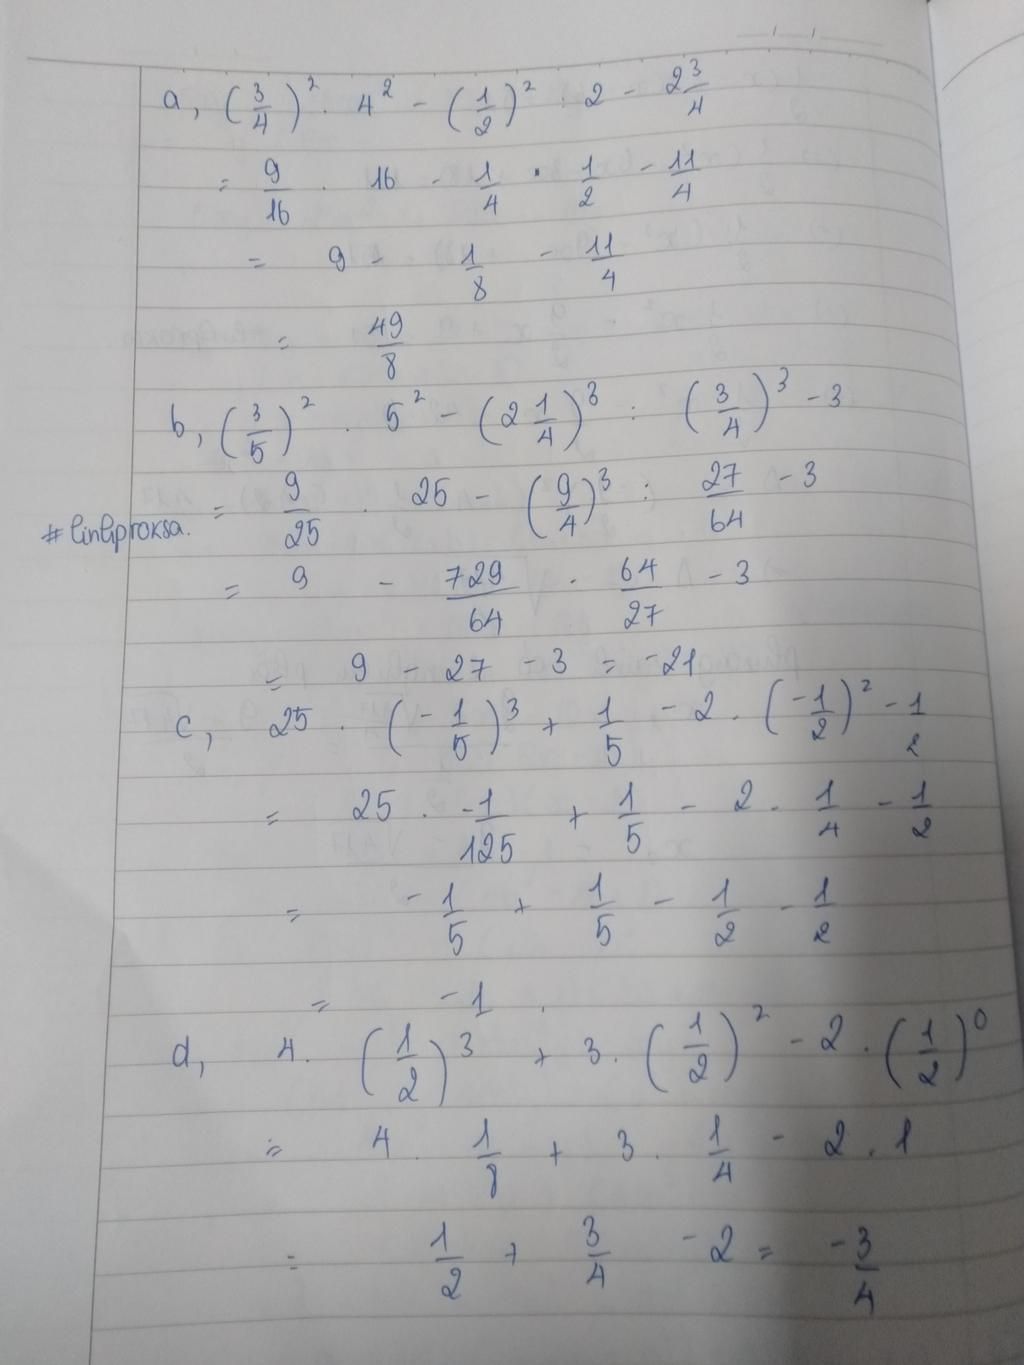 a, (3/4)² . 4² - (1/2)² : 2 - 2 3/4
= 9/16 . 16 - 1/4 . 1/2 - 11/4
= 9 - 1/8 - 11/4
= 49/8
b, (3/5)² . 5² - (2 1/4)³ : (3/4)³ - 3
= 9/25 . 25 - (9/4)³ : 27/64 - 3
# linliproksa.
= 9 - 729/64 . 64/27 - 3
= 9 - 27 - 3 = -21
c, 25 . (-1/5)³ + 1/5 - 2 . (-1/2)² - 1/2
= 25 . -1/125 + 1/5 - 2 . 1/4 - 1/2
= -1/5 + 1/5 - 1/2 - 1/2
= -1 .
d, 4 . (1/2)³ + 3 . (1/2)² - 2 . (1/2)⁰
= 4 . 1/8 + 3 . 1/4 - 2 . 1
= 1/2 + 3/4 - 2 = -3/4